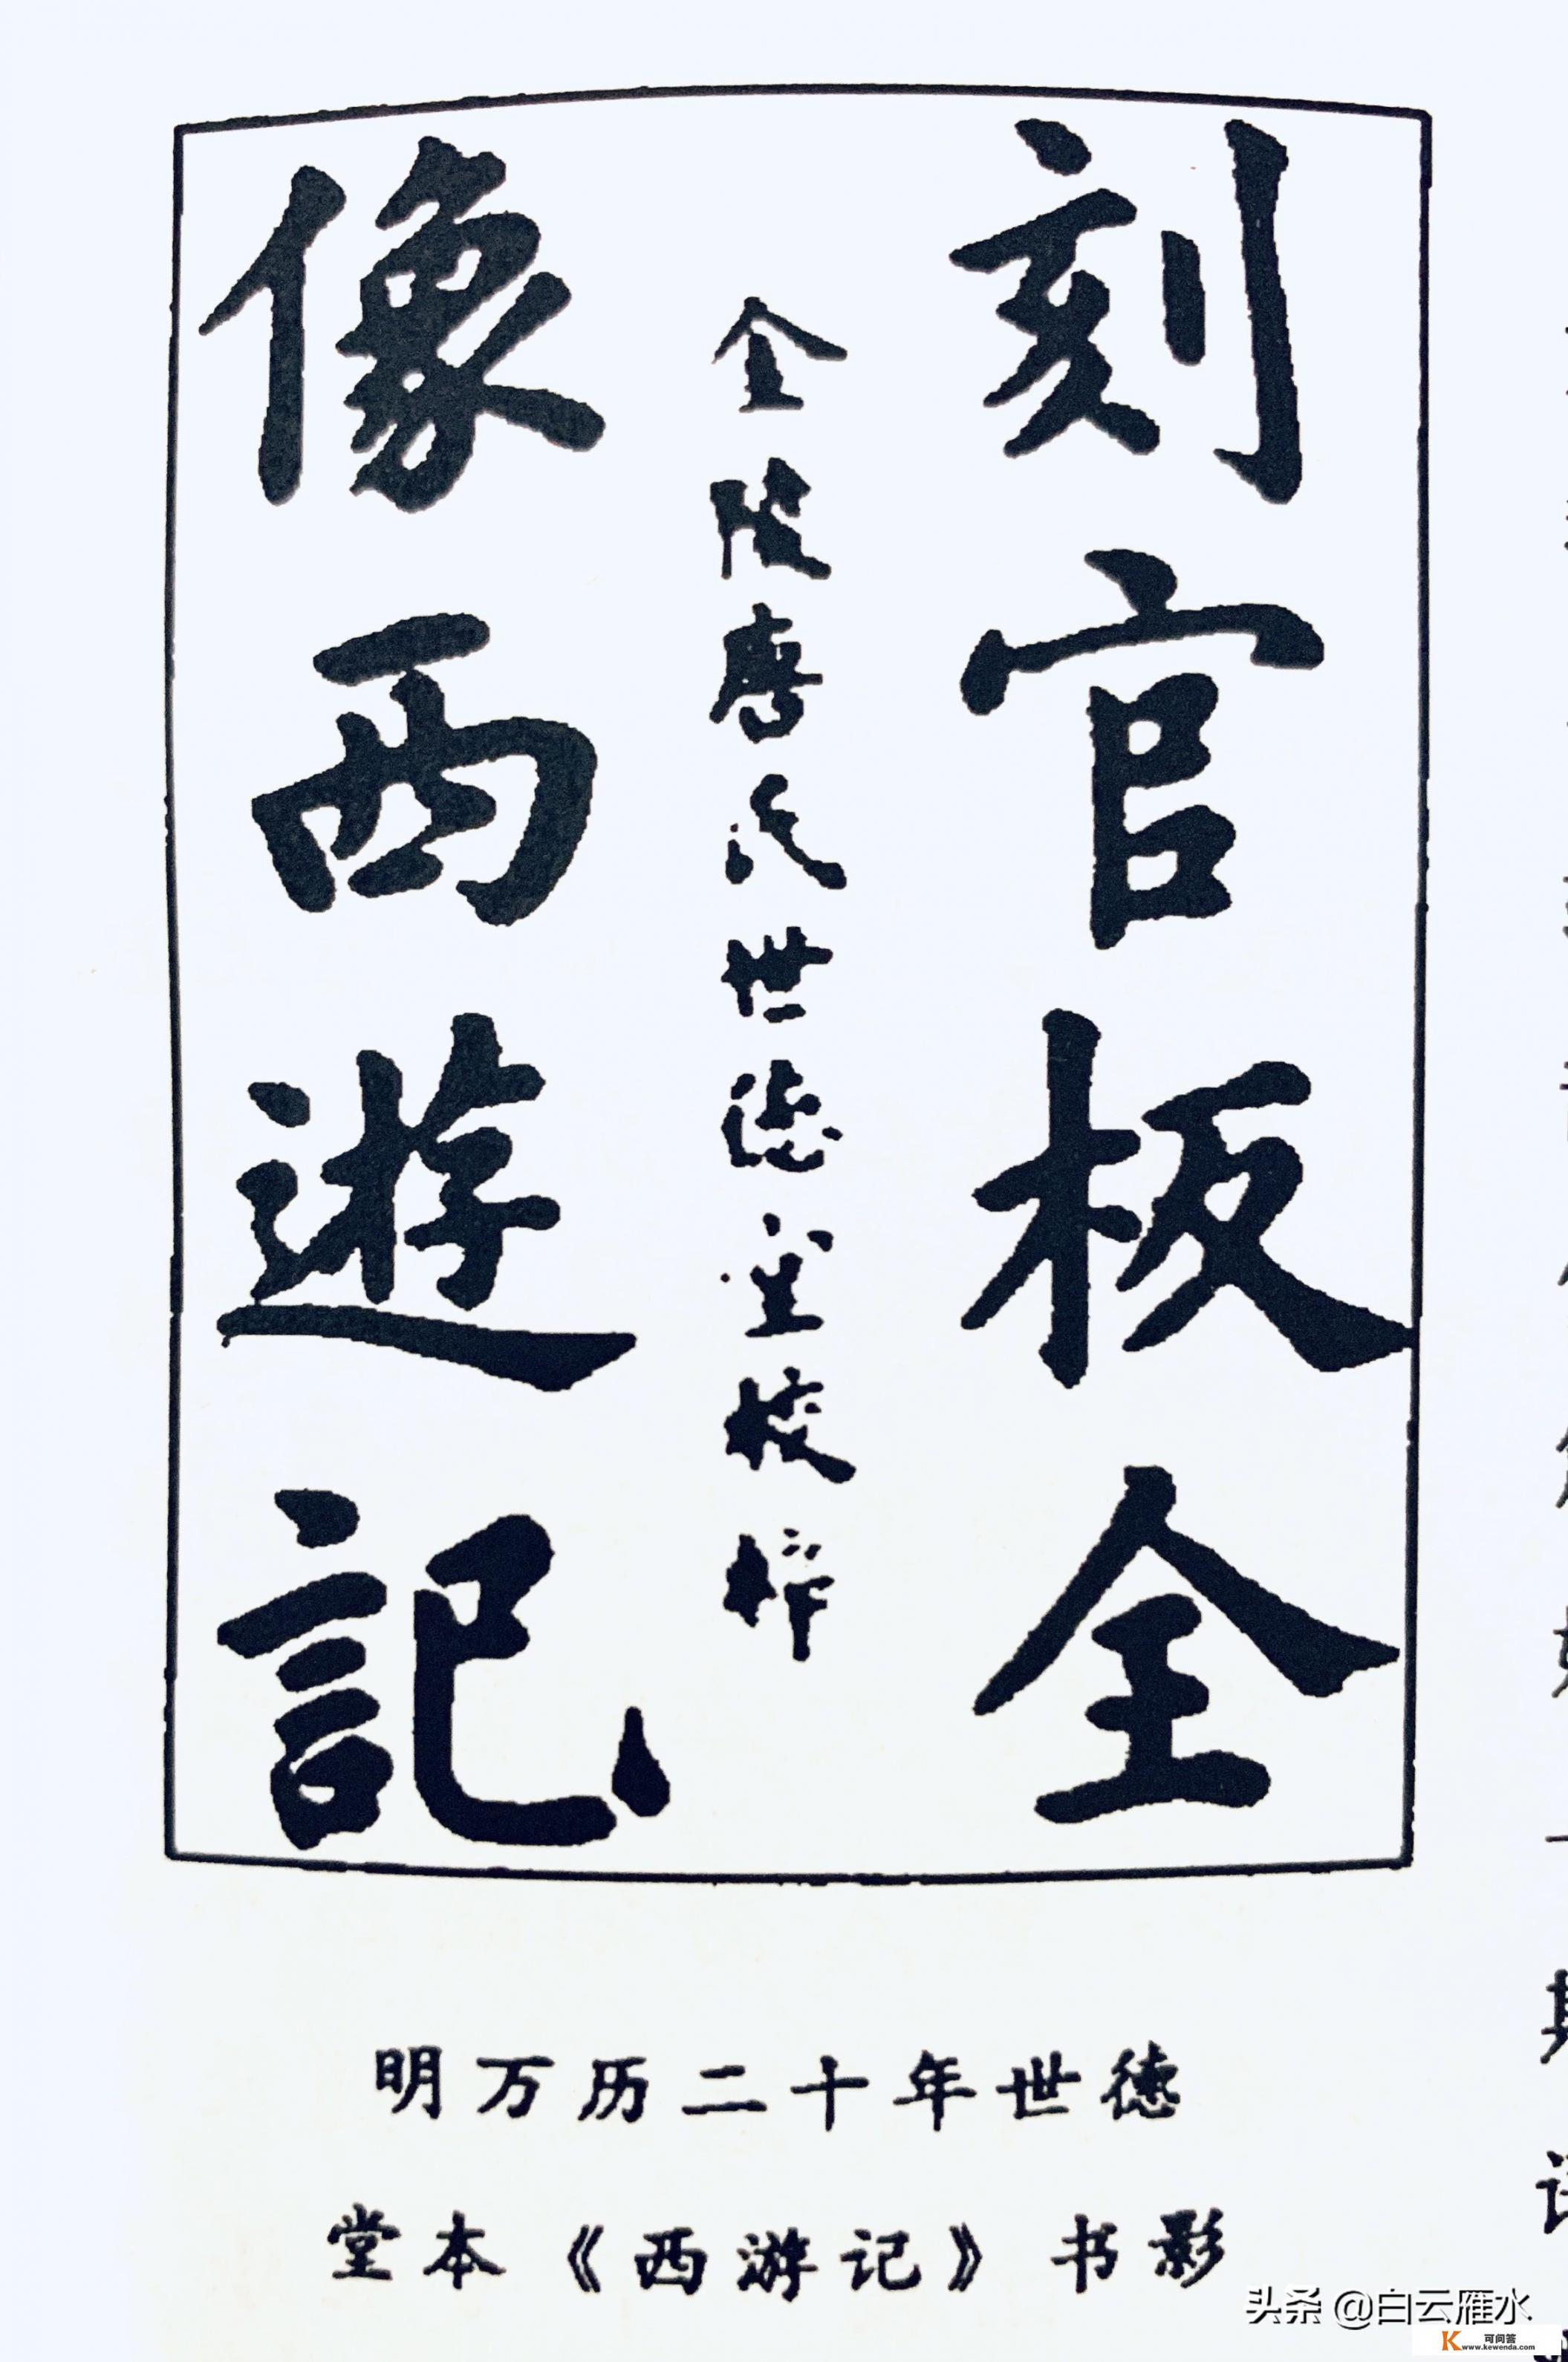 刻官板全
金陵唐氏世德堂校梓
像西遊記
明万历二十年世德
堂本《西游记》书影
头条 @白云雁水
K 可问答
www.kewenda.com